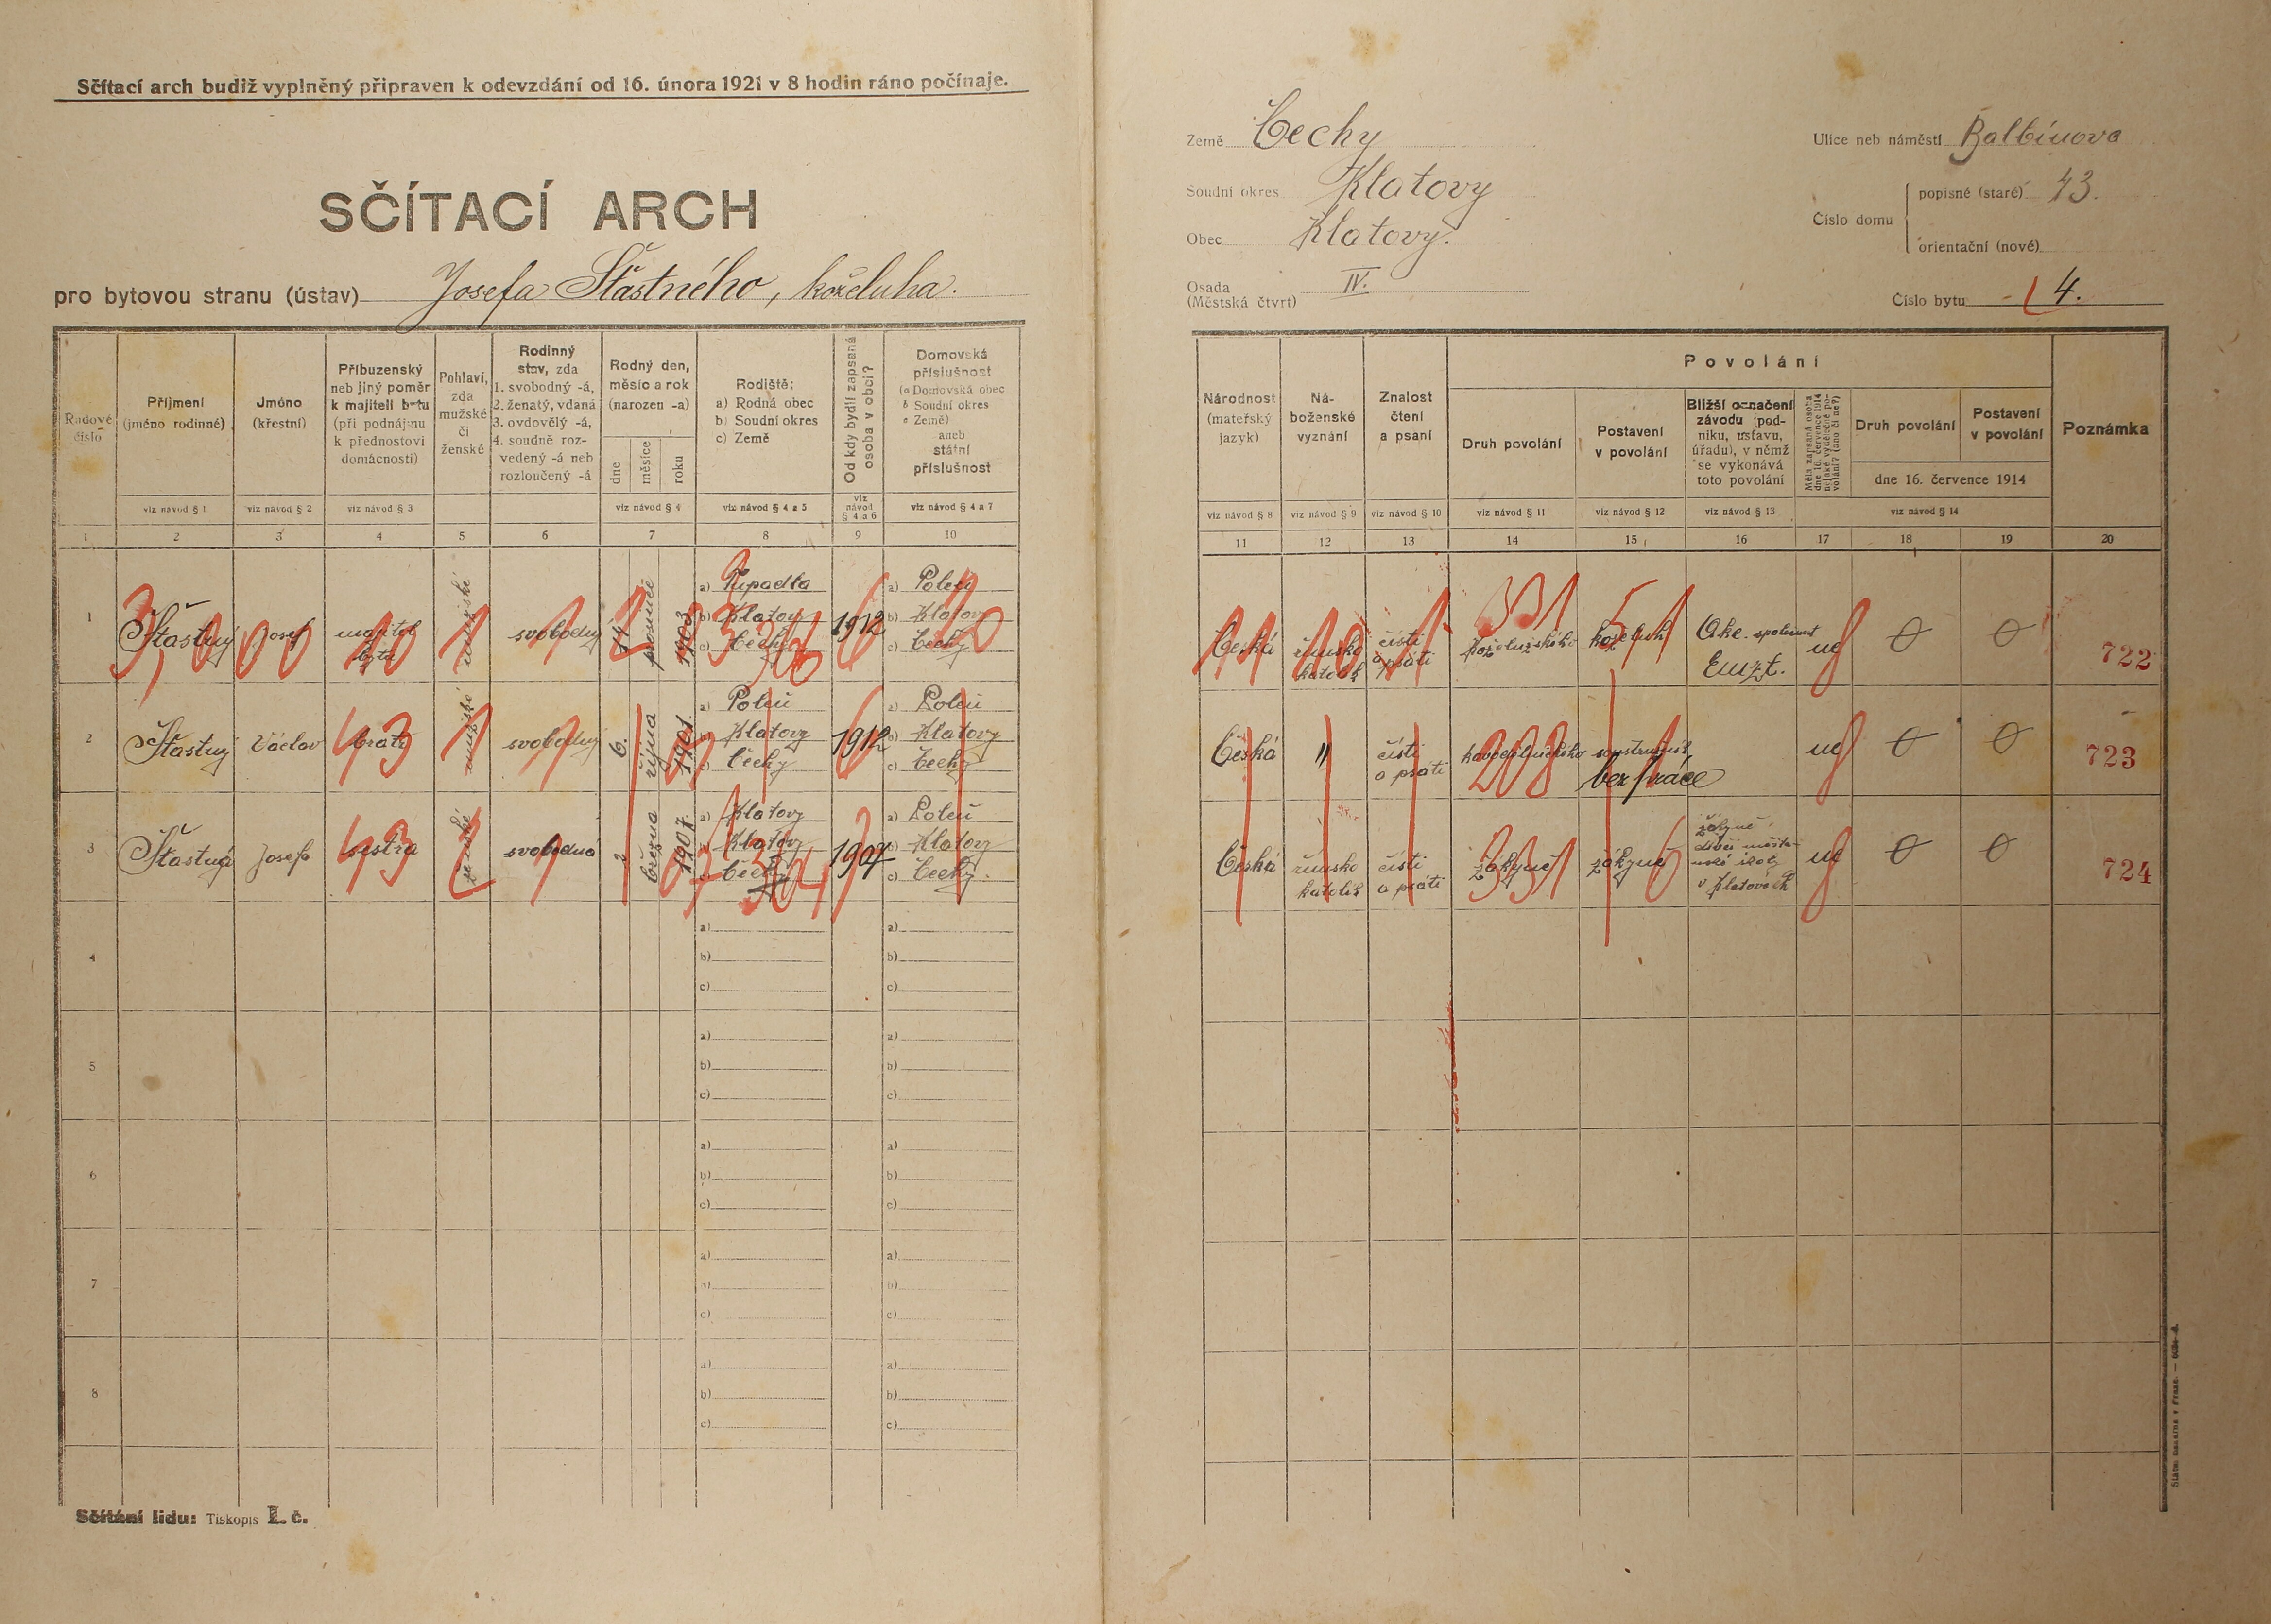 Sčítací arch budiž vyplněný připraven k odevzdání od 16. února 1921 v 8 hodin ráno počínaje.
SČÍTACÍ ARCH
pro bytovou stranu (ústav) Josefa Šťastného, koželuha.
Země Čechy
Soudní okres Klatovy
Obec Klatovy.
Osada
(Městská čtvrt) IV.
Ulice neb náměstí Balbínova
Číslo domu
popisné (staré) 43.
orientační (nové)
Číslo bytu 4.
Řadové číslo
Příjmení (jméno rodinné)
Jméno (křestní)
Příbuzenský neb jiný poměr k majiteli bytu (při podnájmu k přednostovi domácnosti)
Pohlaví, zda mužské či ženské
Rodinný stav, zda 1. svobodný -á, 2. ženatý, vdaná 3. ovdovělý -á, 4. soudně rozvedený -á neb rozloučený -á
Rodný den, měsíc a rok (narozen -a)
dne
měsíce
roku
Rodiště: a) Rodná obec b) Soudní okres c) Země
Od kdy bydlí zapsaná osoba v obci?
Domovská příslušnost (a Domovská obec b Soudní okres c Země) aneb státní příslušnost
viz návod § 1
viz návod § 2
viz návod § 3
viz návod § 4
viz návod § 4 a 5
viz návod § 4 a 6
viz návod § 4 a 7
1 2 3 4 5 6 7 8 9 10
Národnost (mateřský jazyk)
Náboženské vyznání
Znalost čtení a psaní
Povolání
Druh povolání
Postavení v povolání
Bližší označení závodu (podniku, ústavu, úřadu), v němž se vykonává toto povolání
Měla zapsaná osoba dne 16. července 1914 nějaké výdělečné povolání? (ano či ne?)
Druh povolání
Postavení v povolání
dne 16. července 1914
Poznámka
viz návod § 8
viz návod § 9
viz návod § 10
viz návod § 11
viz návod § 12
viz návod § 13
viz návod § 14
11 12 13 14 15 16 17 18 19 20
1 Šťastný Josef majitel bytu mužské svobodný 14 prosince 1903
a) Tupadla
b) Klatovy
c) Čechy
1912
a) Poleň
b) Klatovy
c) Čechy
Česká římsko katolík čísti a psáti koželuh Akc. společnost ne 0 0 722
2 Šťastný Václav bratr mužské svobodný 6. října 1901.
a) Poleň
b) Klatovy
c) Čechy
1912
a) Poleň
b) Klatovy
c) Čechy
Česká " čísti a psáti 208 bez práce ne 0 0 723
3 Šťastná Josefa sestra ženské svobodná března 1907.
a) Klatovy
b) Klatovy
c) Čechy
1907
a) Poleň
b) Klatovy
c) Čechy.
Česká římsko katolík čísti a psáti žákyně žákyně žákyně dívčí měšťanské školy v Klatovech ne 0 0 724
4 a) a)
b) b)
c) c)
5 a) a)
b) b)
c) c)
6 a) a)
b) b)
c) c)
7 a) a)
b) b)
c) c)
8 a) a)
b) b)
c) c)
Sčítání lidu: Tiskopis I. č.